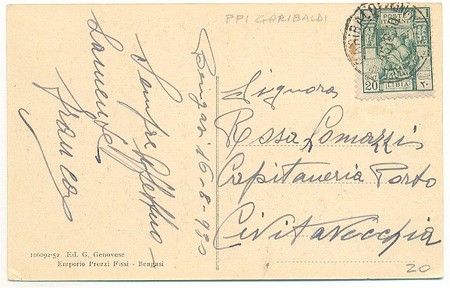 PPI GARIBALDI
POSTE ITALIANE
20
LIBIA
٢٠
Bengasi 16-8-930
Sempre
Franco
Signora
Rosa Lomazzi
Capitaneria Porto
Civitavecchia
106092-52 Ed. G. Genovese
Emporio Prezzi Fissi - Bengasi
20